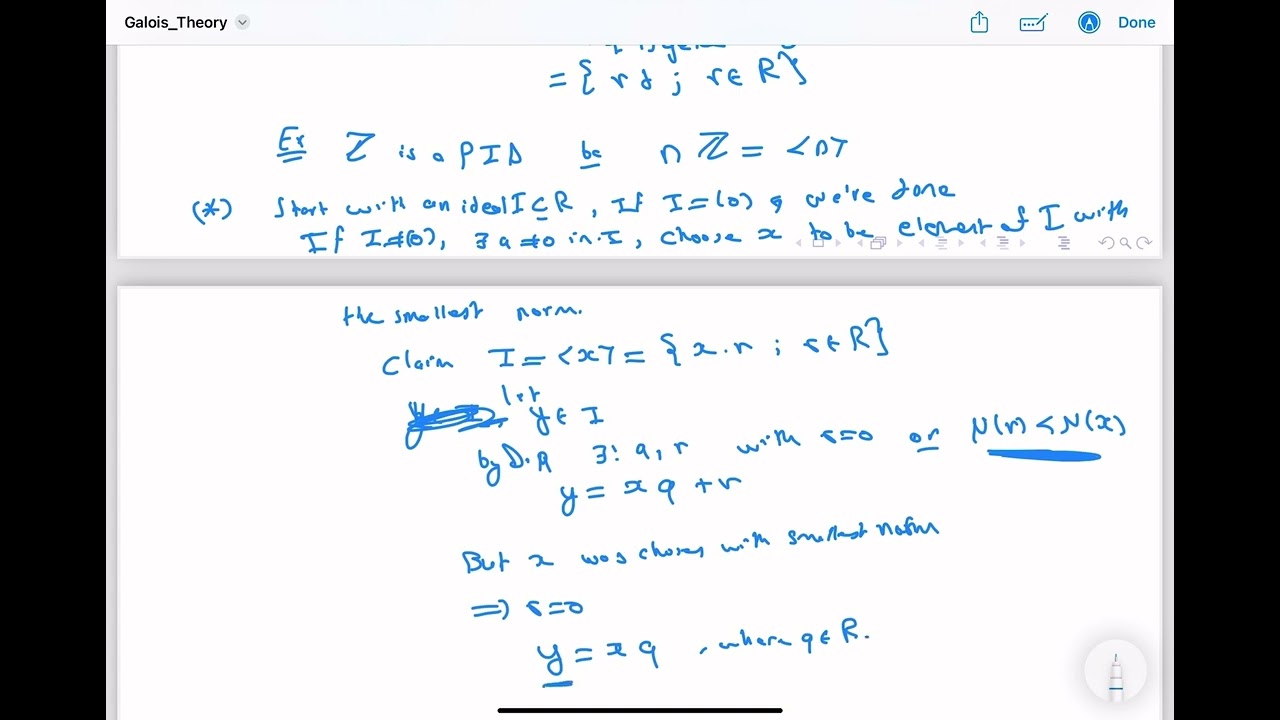 Galois_Theory
Done
= { r d ; r ∈ R }
Ex ℤ is a PID be n ℤ = <n>
(*) Start with an ideal I ⊆ R , If I = (0) , we're done
If I ≠ (0), ∃ a ≠ 0 in I , choose x to be element of I with
the smallest norm.
Claim I = <x> = { x . r ; r ∈ R }
let
y ∈ I
by D.A ∃! q, r with r = 0 or N(r) < N(x)
y = x q + r
But x was chosen with smallest norm
⇒ r = 0
y = x q , where q ∈ R.